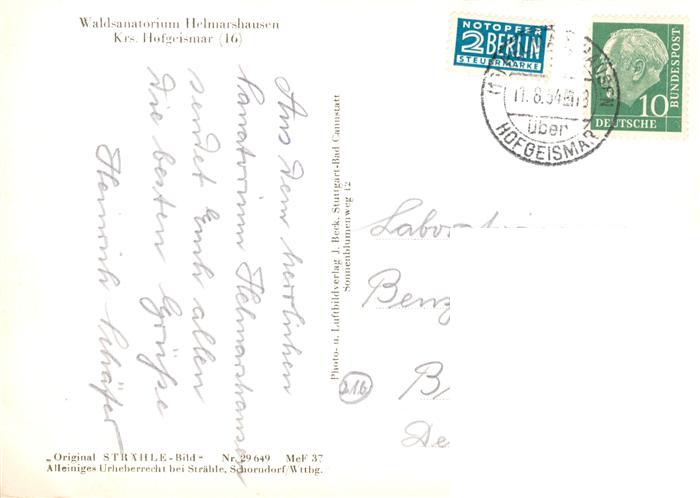 Waldsanatorium Helmarshausen
Krs. Hofgeismar (16)
NOTOPFER
2 BERLIN
STEUERMARKE
11. 8. 54
über
HOFGEISMAR
10
DEUTSCHE
BUNDESPOST
Aus dem herrlichen
Sanatorium Helmarshausen
sendet Euch allen
die besten Grüße
Heinrich Schäfer
Photo- u. Luftbildverlag J. Beck, Stuttgart-Bad Cannstatt
Sonnenblumenweg 12
Labor
Benz
B
De
21b
„Original STRÄHLE-Bild“ Nr. 29649 MeF 37
Alleiniges Urheberrecht bei Strähle, Schorndorf/Wttbg.